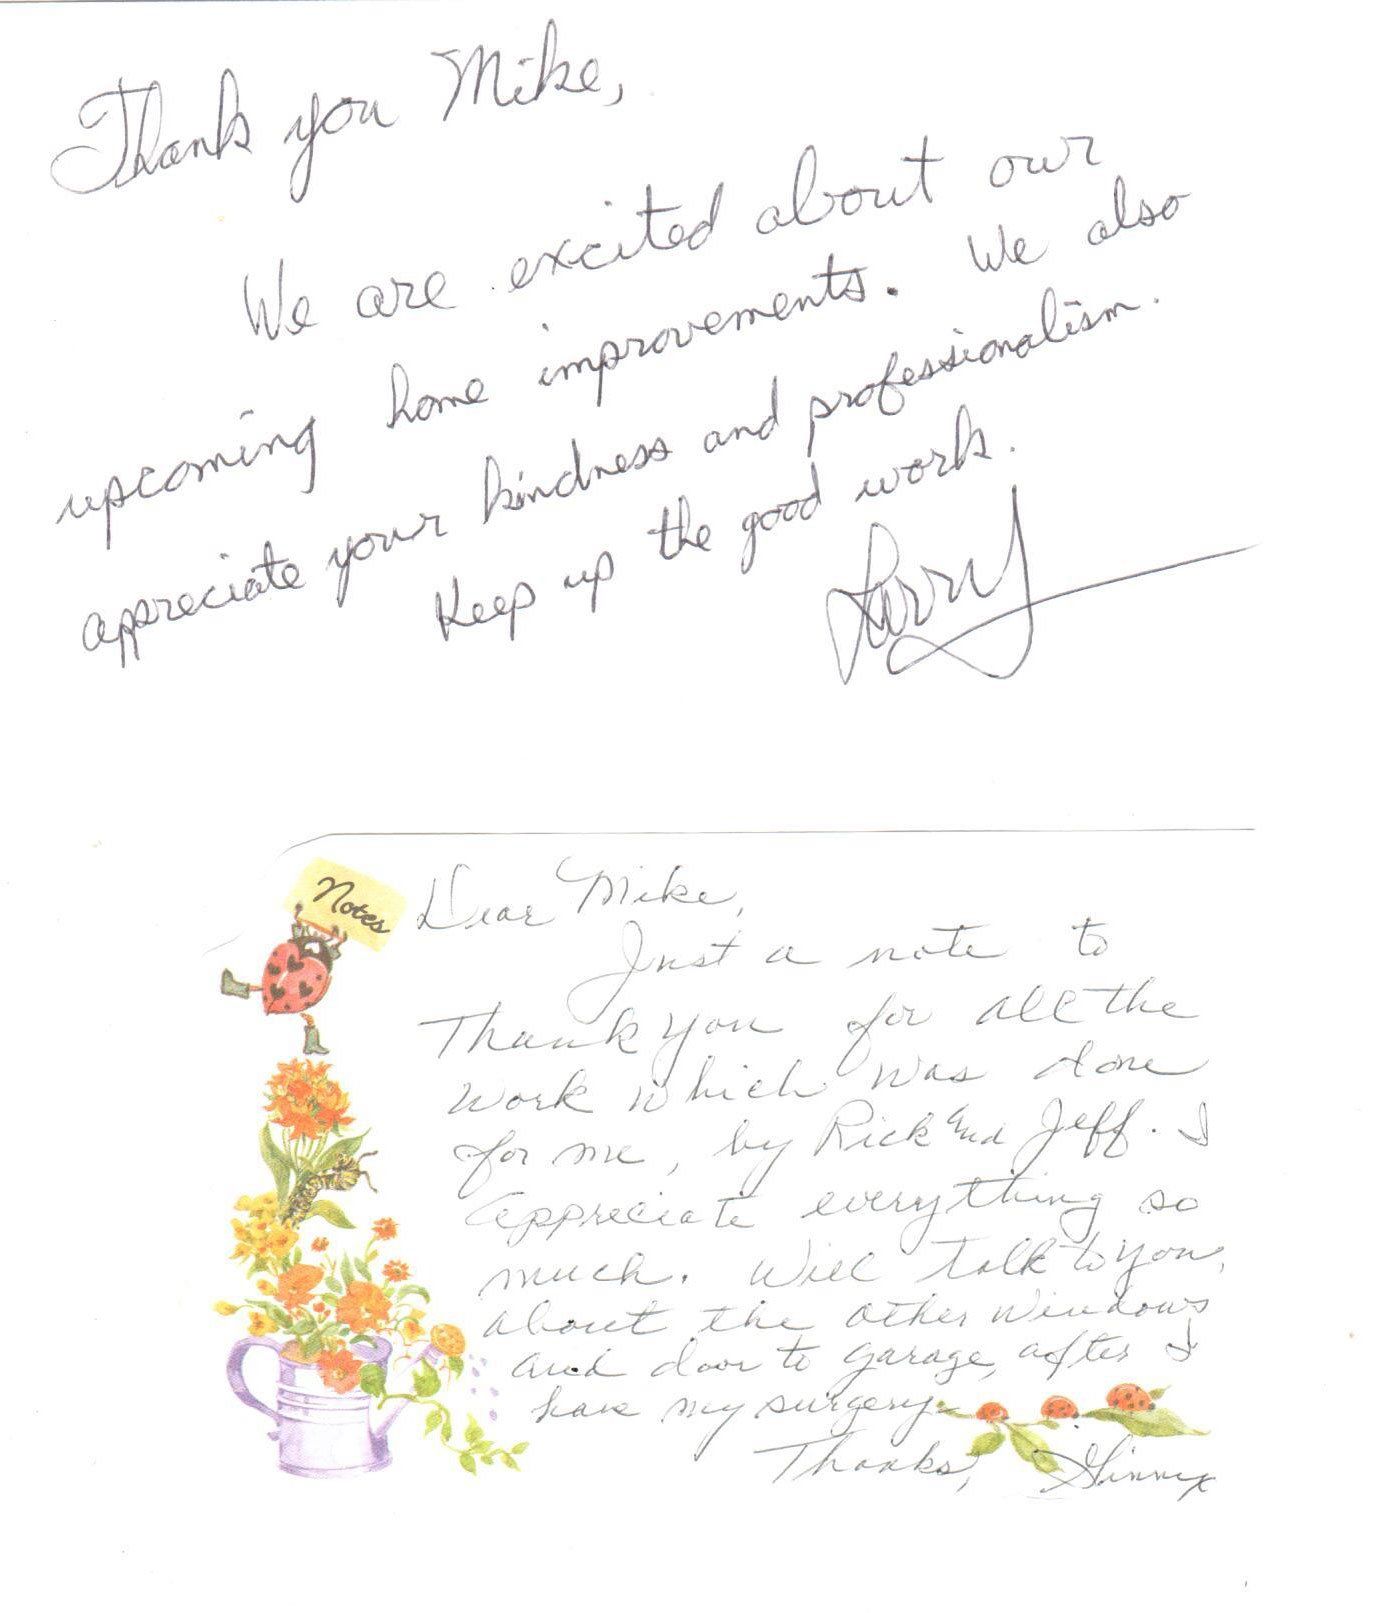 Thank you Mike,
We are excited about our
upcoming home improvements. We also
appreciate your kindness and professionalism.
Keep up the good work.
Larry
Notes
Dear Mike,
Just a note to
Thank you for all the
work which was done
for me, by Rick and Jeff. I
appreciate everything so
much. Will talk to you,
about the other windows
and door to garage, after I
have my surgery.
Thanks, Ginny